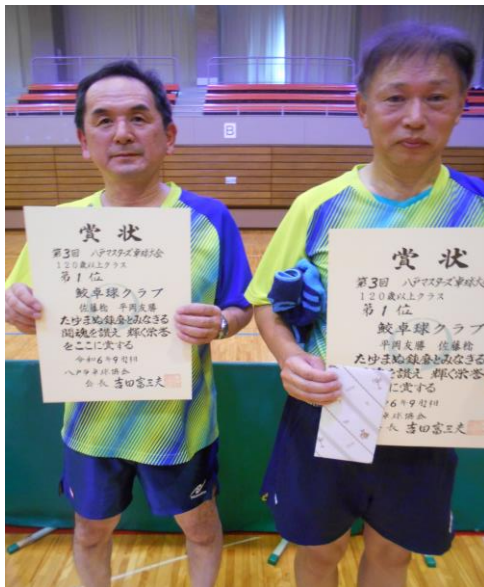 賞状
第3回 八戸マスターズ卓球大会
120歳以上クラス
第1位
鮫卓球クラブ
佐藤稔 平岡友勝
たゆまぬ錬磨とみなぎる
闘魂を讃え 輝く栄誉
をここに賞する
令和6年9月
八戸市卓球協会
会長 吉田富三夫
B
賞状
第3回 八戸マスターズ卓球大
120歳以上クラス
第1位
鮫卓球クラブ
平岡友勝 佐藤稔
たゆまぬ錬磨とみなぎる
を讃え 輝く栄誉
に賞する
6年9月
卓球協会
長 吉田富三夫